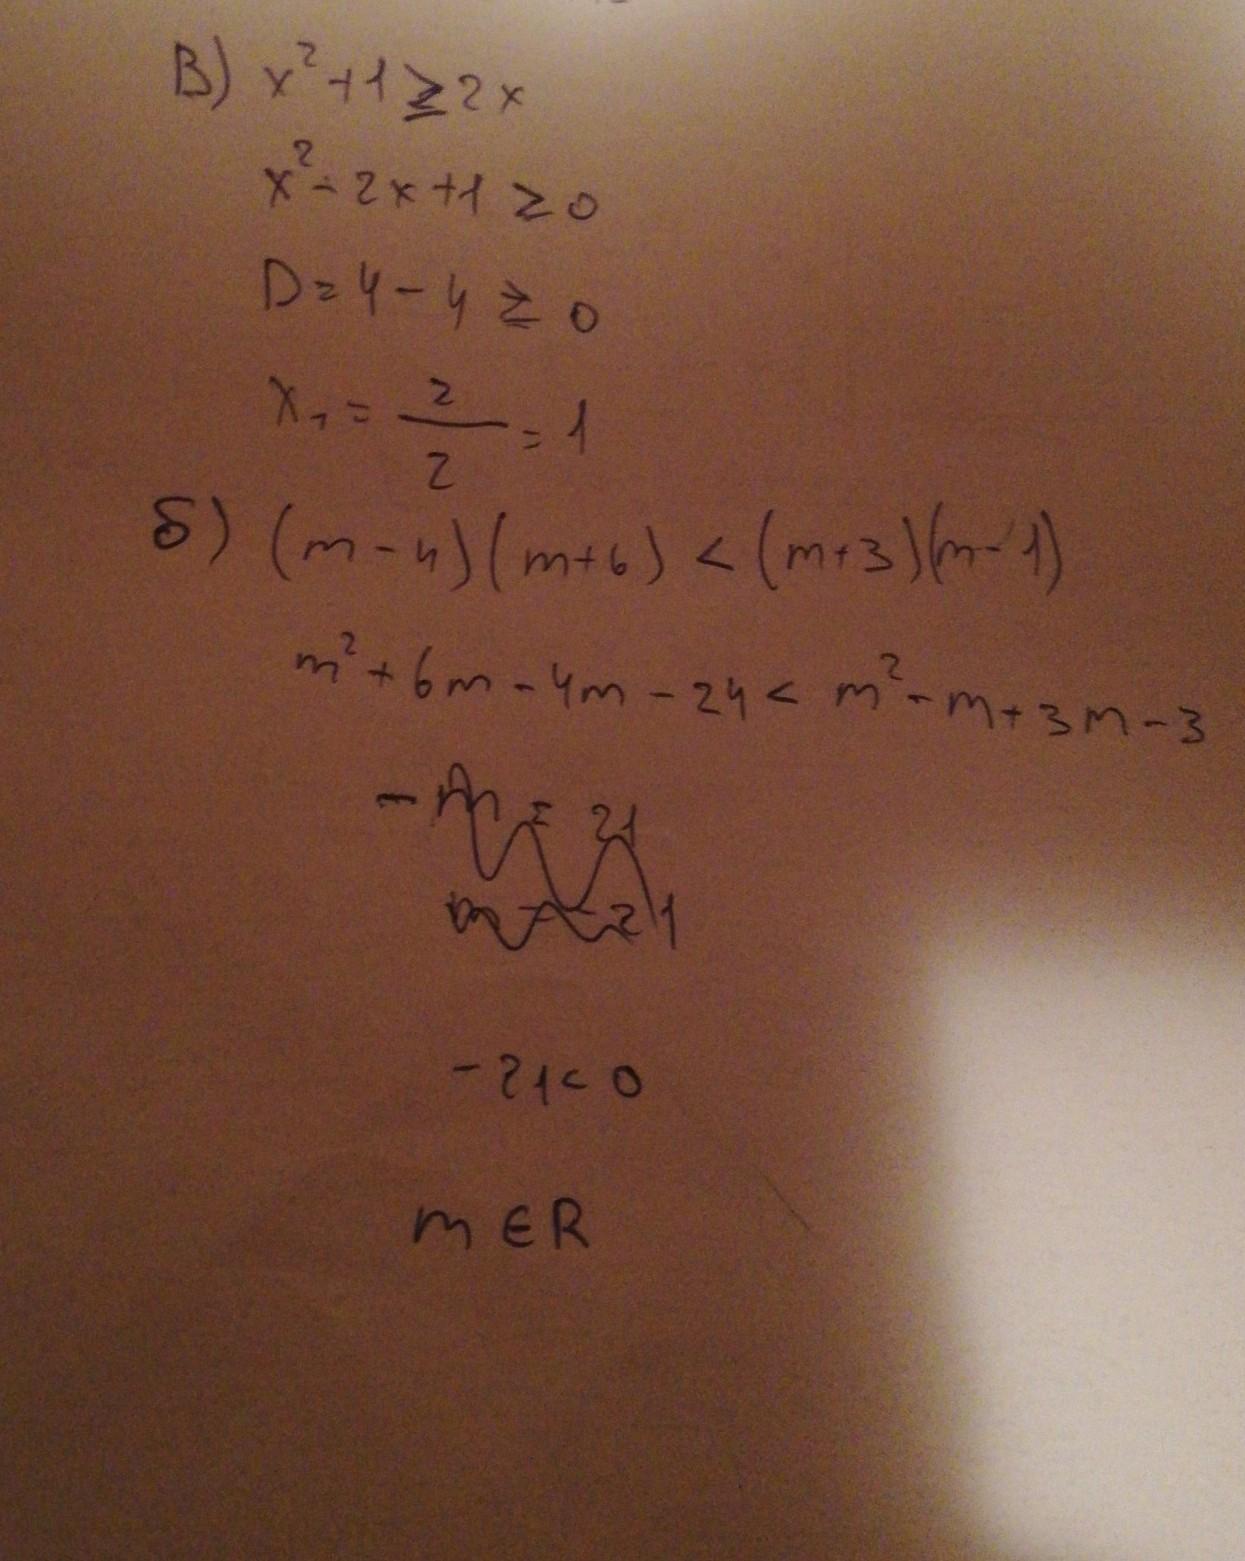 В) x² + 1 ≥ 2x
x² - 2x + 1 ≥ 0
D = 4 - 4 ≥ 0
x₁ = 2/2 = 1
б) (m - 4)(m + 6) < (m + 3)(m - 1)
m² + 6m - 4m - 24 < m² - m + 3m - 3
- m = 21
- 21 < 0
m ∈ R